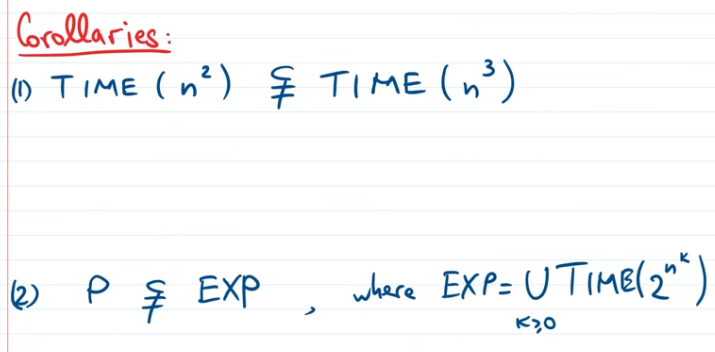 Corollaries:
(1) TIME (n²) ⊊ TIME (n³)
(2) P ⊊ EXP , where EXP = ∪ TIME(2^{n^k})
k≥0